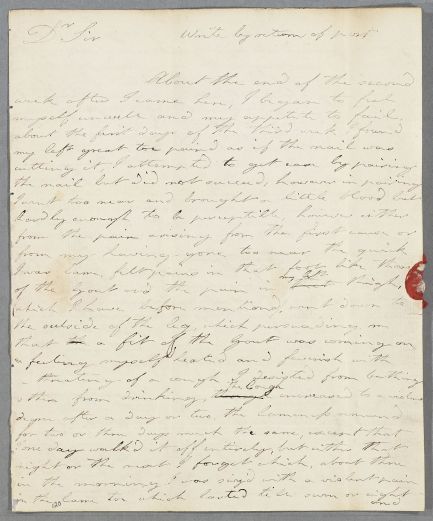 Dr Sir Write by return of post
About the end of the second
week after I came here, I began to feel
myself unwell and my appetite to fail.
about the first days of the third week I found
my left great toe pain'd as if the nail was
cutting it I attempted to get ease by pairing
the nail but did not succeed, however in pairing
I went too near and brought a little blood but
hardly enough to be perceptible however either
from the pain arising from the first cause or
from my having gone too near the quick
I was lame, felt pains in that foot like those
of the Gout and the pain in my left thigh,
which I have before mentioned, went down to
the outside of the leg, which persuading me
that a fit of the Gout was coming on
& feeling myself heated and feverish with
threatning of a cough I desisted from bathing
& then from drinking, the Cough increased to a
degree after a day or two, the Lameness
for two or three days much the same, except that
one day walk'd it off entirely, but either that
night or the next I forget which, about three
in the morning I was seiz'd with a violent pain
in the same toe which lasted till seven or eight
120 and